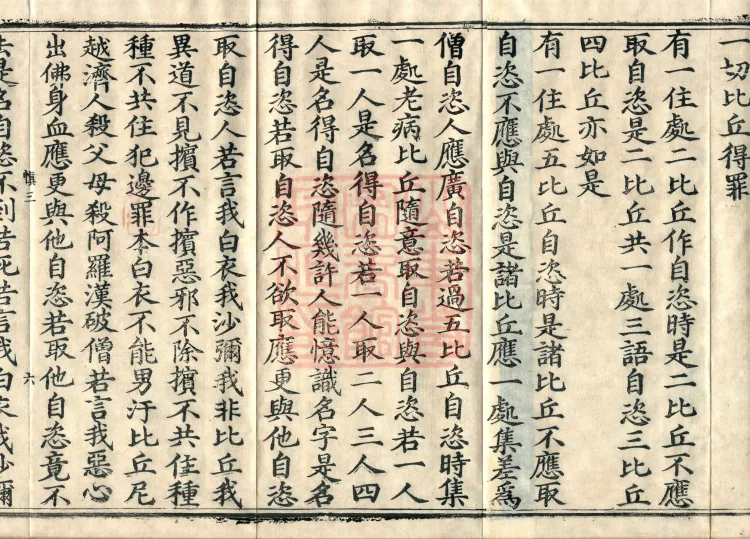 一切比丘得罪
有一住處二比丘作自恣時是二比丘不應
取自恣是二比丘共一處三語自恣三比丘
四比丘亦如是
有一住處五比丘自恣時是諸比丘不應取
自恣不應與自恣是諸比丘應一處集差爲
僧自恣人應廣自恣若過五比丘自恣時集
一處老病比丘隨意取自恣與自恣若一人
取一人是名得自恣若一人取二人三人四
人是名得自恣隨幾許人能憶識名字是名
得自恣若取自恣人不欲取應更與他自恣
取自恣人若言我白衣我沙彌我非比丘我
異道不見擯不作擯惡邪不除擯不共住種
種不共住犯邊罪本白衣不能男汙比丘尼
越濟人殺父母殺阿羅漢破僧若言我惡心
出佛身血應更與他自恣若取他自恣竟不
慎三 六
去是名自恣不到若死若言我白衣我沙彌